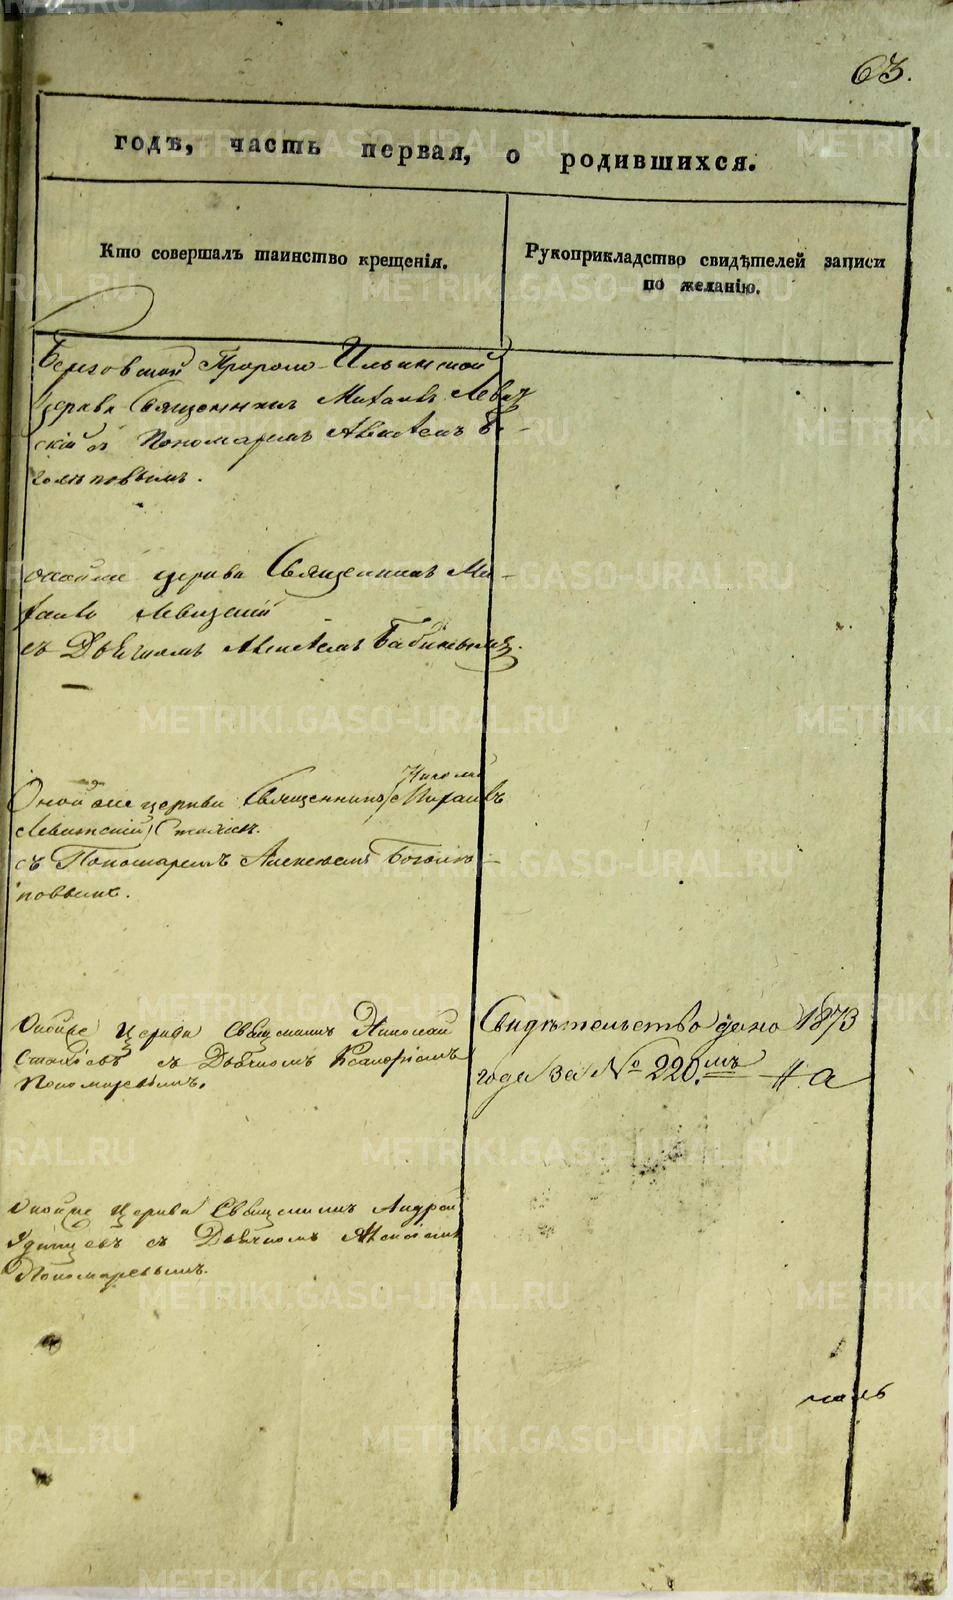 63.
годъ, часть первая, о родившихся.
Кто совершалъ таинство крещенія.
Рукоприкладство свидѣтелей записи
по желанію.
Пророко-Ильинской
церкви Священникъ Михаилъ Левит
скій съ Пономаремъ Бо-
голѣповымъ.
оной же церкви Священникъ Ми-
хаилъ Левитскій
съ Дьячкомъ Бабиновымъ.
Николай
Оной же церкви Священникъ Михаилъ
Левитскій
съ Пономаремъ Алексѣемъ Боголѣ-
повымъ.
Оной же Церкви Священникъ Николай
съ Дьячкомъ
Пономаревымъ.
Свидѣтельство дано 1873
года за № 220.мъ
Оной же Церкви Священникъ Андрей
съ Дьячкомъ
Пономаревымъ.
METRIKI.GASO-URAL.RU